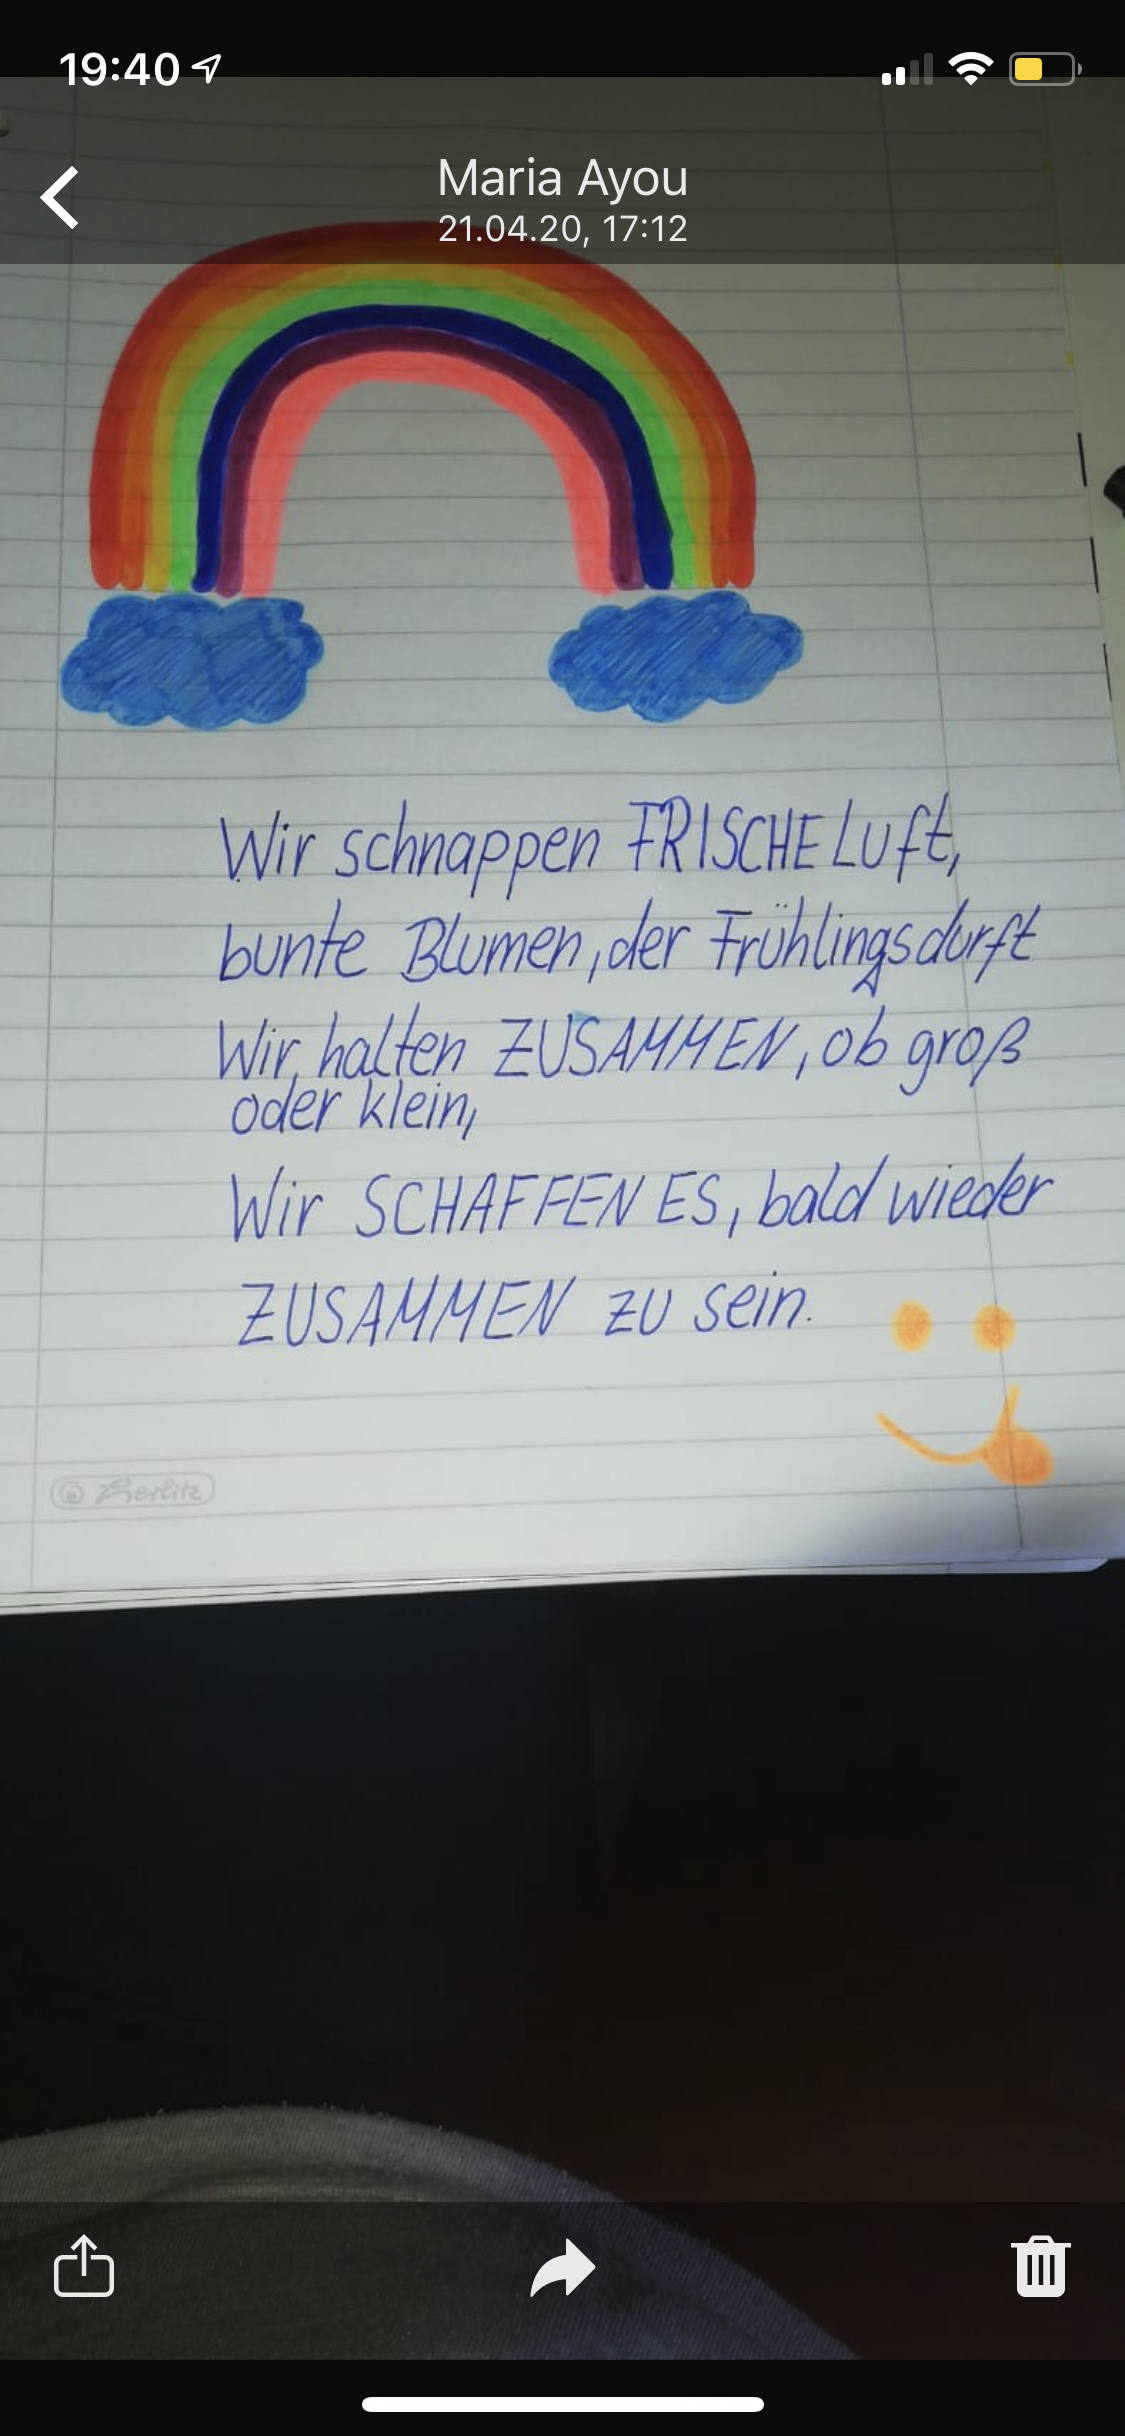 19:40
Maria Ayou
21.04.20, 17:12
Wir schnappen FRISCHE Luft,
bunte Blumen, der Frühlingsdurft
Wir halten ZUSAMMEN, ob groß
oder klein,
Wir SCHAFFEN ES, bald wieder
ZUSAMMEN zu sein.
© Herlitz